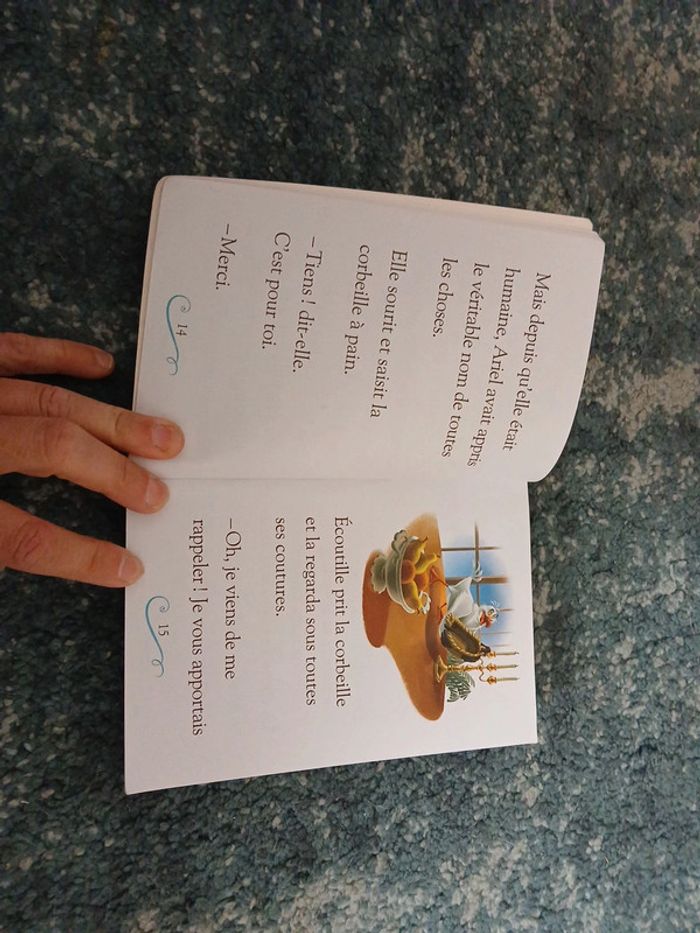 Mais depuis qu'elle était
humaine, Ariel avait appris
le véritable nom de toutes
les choses.
Elle sourit et saisit la
corbeille à pain.
– Tiens ! dit-elle.
C'est pour toi.
– Merci.
14
Écoutille prit la corbeille
et la regarda sous toutes
ses coutures.
– Oh, je viens de me
rappeler ! Je vous apportais
15